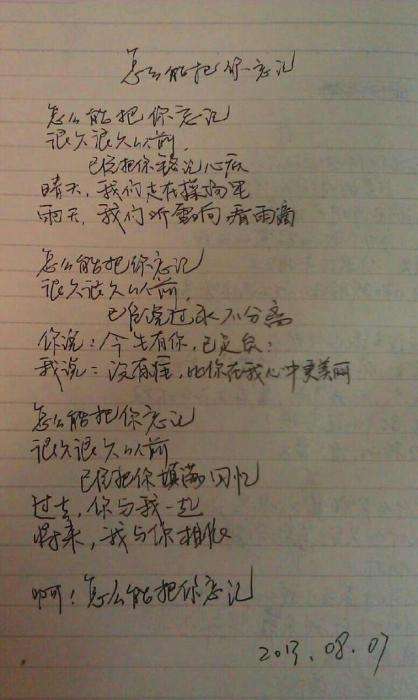 怎么能把你忘记
怎么能把你忘记
很久很久以前,
已经把你铭记心底
晴天,我们走在
雨天,我们听雷声 看雨滴
怎么能把你忘记
很久很久以前,
已经说过永不分离
你说:今生有你,已足矣;
我说:没有谁,比你在我心中更美丽
怎么能把你忘记
很久很久以前
已经把你填满回忆
过去,你与我一起
将来,我与你相依
啊!怎么能把你忘记
2013.08.07